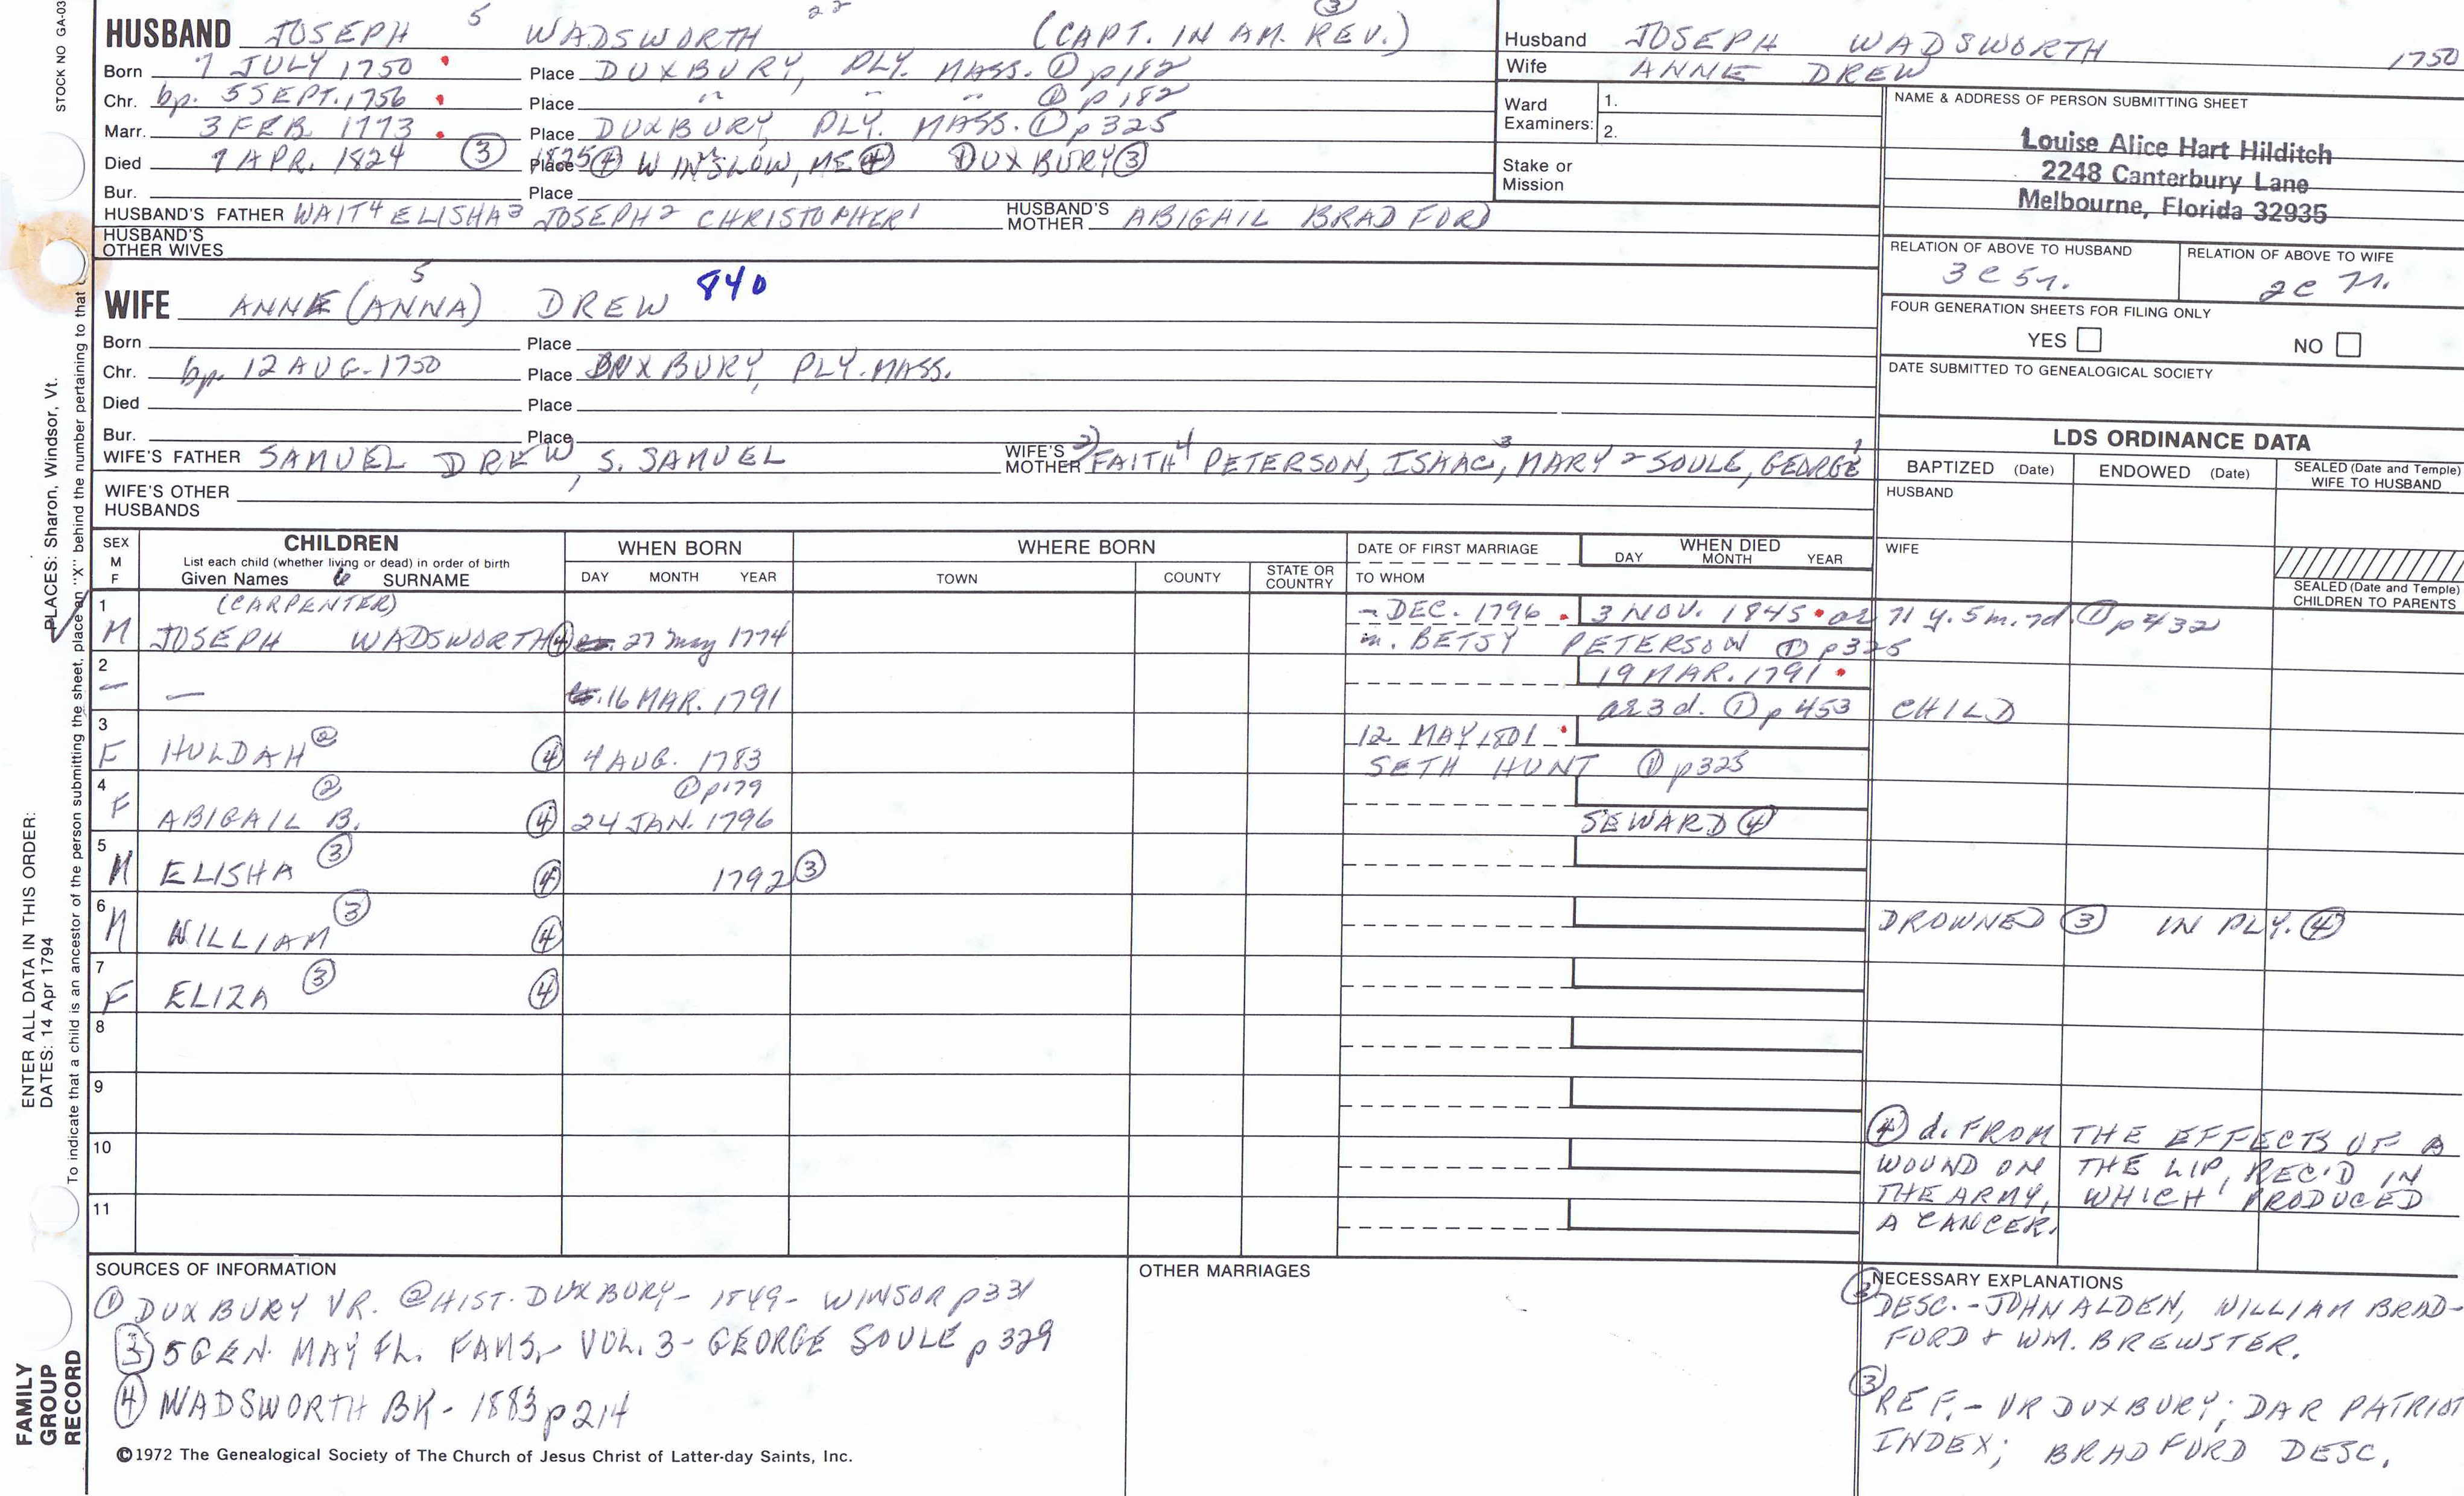 STOCK NO GA-03
HUSBAND JOSEPH 5 WADSWORTH 22 (CAPT. IN AM. REV.) ③
Born 7 JULY 1750 Place DUXBURY, PLY. MASS. ① p182
Chr. bp. 5 SEPT. 1756 Place " " " ① p182
Marr. 3 FEB 1773 Place DUXBURY, PLY. MASS. ① p325
Died 7 APR. 1824 ③ 1825 ④ Place WINSLOW, ME ④ DUXBURY ③
Bur. Place
HUSBAND'S FATHER WAIT4 ELISHA3 JOSEPH2 CHRISTOPHER1 HUSBAND'S MOTHER ABIGAIL BRADFORD
HUSBAND'S OTHER WIVES
Husband JOSEPH WADSWORTH 1750
Wife ANNE DREW
Ward Examiners: 1.
2.
Stake or Mission
NAME & ADDRESS OF PERSON SUBMITTING SHEET
Louise Alice Hart Hilditch
2248 Canterbury Lane
Melbourne, Florida 32935
RELATION OF ABOVE TO HUSBAND RELATION OF ABOVE TO WIFE
3C 5r. 2C 7r.
FOUR GENERATION SHEETS FOR FILING ONLY
YES NO
DATE SUBMITTED TO GENEALOGICAL SOCIETY
WIFE ANNE (ANNA) 5 DREW 840
Born Place
Chr. bp. 12 AUG. 1750 Place DUXBURY, PLY. MASS.
Died Place
Bur. Place
WIFE'S FATHER SAMUEL DREW, S. SAMUEL WIFE'S MOTHER 2) FAITH4 PETERSON, ISAAC3, MARY2 SOULE, GEORGE1
WIFE'S OTHER HUSBANDS
LDS ORDINANCE DATA
BAPTIZED (Date) ENDOWED (Date) SEALED (Date and Temple) WIFE TO HUSBAND
HUSBAND
WIFE
SEALED (Date and Temple) CHILDREN TO PARENTS
SEX M F
CHILDREN
List each child (whether living or dead) in order of birth
Given Names SURNAME
WHEN BORN
DAY MONTH YEAR
WHERE BORN
TOWN COUNTY STATE OR COUNTRY
DATE OF FIRST MARRIAGE
TO WHOM
WHEN DIED
DAY MONTH YEAR
1 (CARPENTER) - DEC. 1796 3 NOV. 1845 ae 71 y. 5 m. 7d ① p432
M JOSEPH WADSWORTH ④ 27 May 1774 m. BETSY PETERSON ① p325
2 19 MAR. 1791
— — 16 MAR. 1791 ae 3 d. ① p453 CHILD
3 12 MAY 1801
F HULDAH ② ④ 4 AUG. 1783 SETH HUNT ① p325
4 ② ① p179
F ABIGAIL B. ④ 24 JAN. 1796 SEWARD ④
5 ③
M ELISHA ④ 1792 ③
6 ③
M WILLIAM ④ DROWNED ③ IN PLY. ④
7 ③
F ELIZA ④
8
9
10
11
④ d. FROM THE EFFECTS OF A
WOUND ON THE LIP, REC'D IN
THE ARMY, WHICH PRODUCED
A CANCER.
SOURCES OF INFORMATION
① DUXBURY VR. ② HIST. DUXBURY - 1849 - WINSOR p331
③ 5 GEN. MAY FL. FAMS, VOL. 3 - GEORGE SOULE p329
④ WADSWORTH BK - 1883 p214
OTHER MARRIAGES
NECESSARY EXPLANATIONS
③ DESC. - JOHN ALDEN, WILLIAM BRAD-
FORD & WM. BREWSTER.
③ REF. - VR DUXBURY; DAR PATRIOT
INDEX; BRADFORD DESC.
©1972 The Genealogical Society of The Church of Jesus Christ of Latter-day Saints, Inc.
FAMILY GROUP RECORD
ENTER ALL DATA IN THIS ORDER:
DATES: 14 Apr 1794
PLACES: Sharon, Windsor, Vt.
To indicate that a child is an ancestor of the person submitting the sheet, place an "X" behind the number pertaining to that